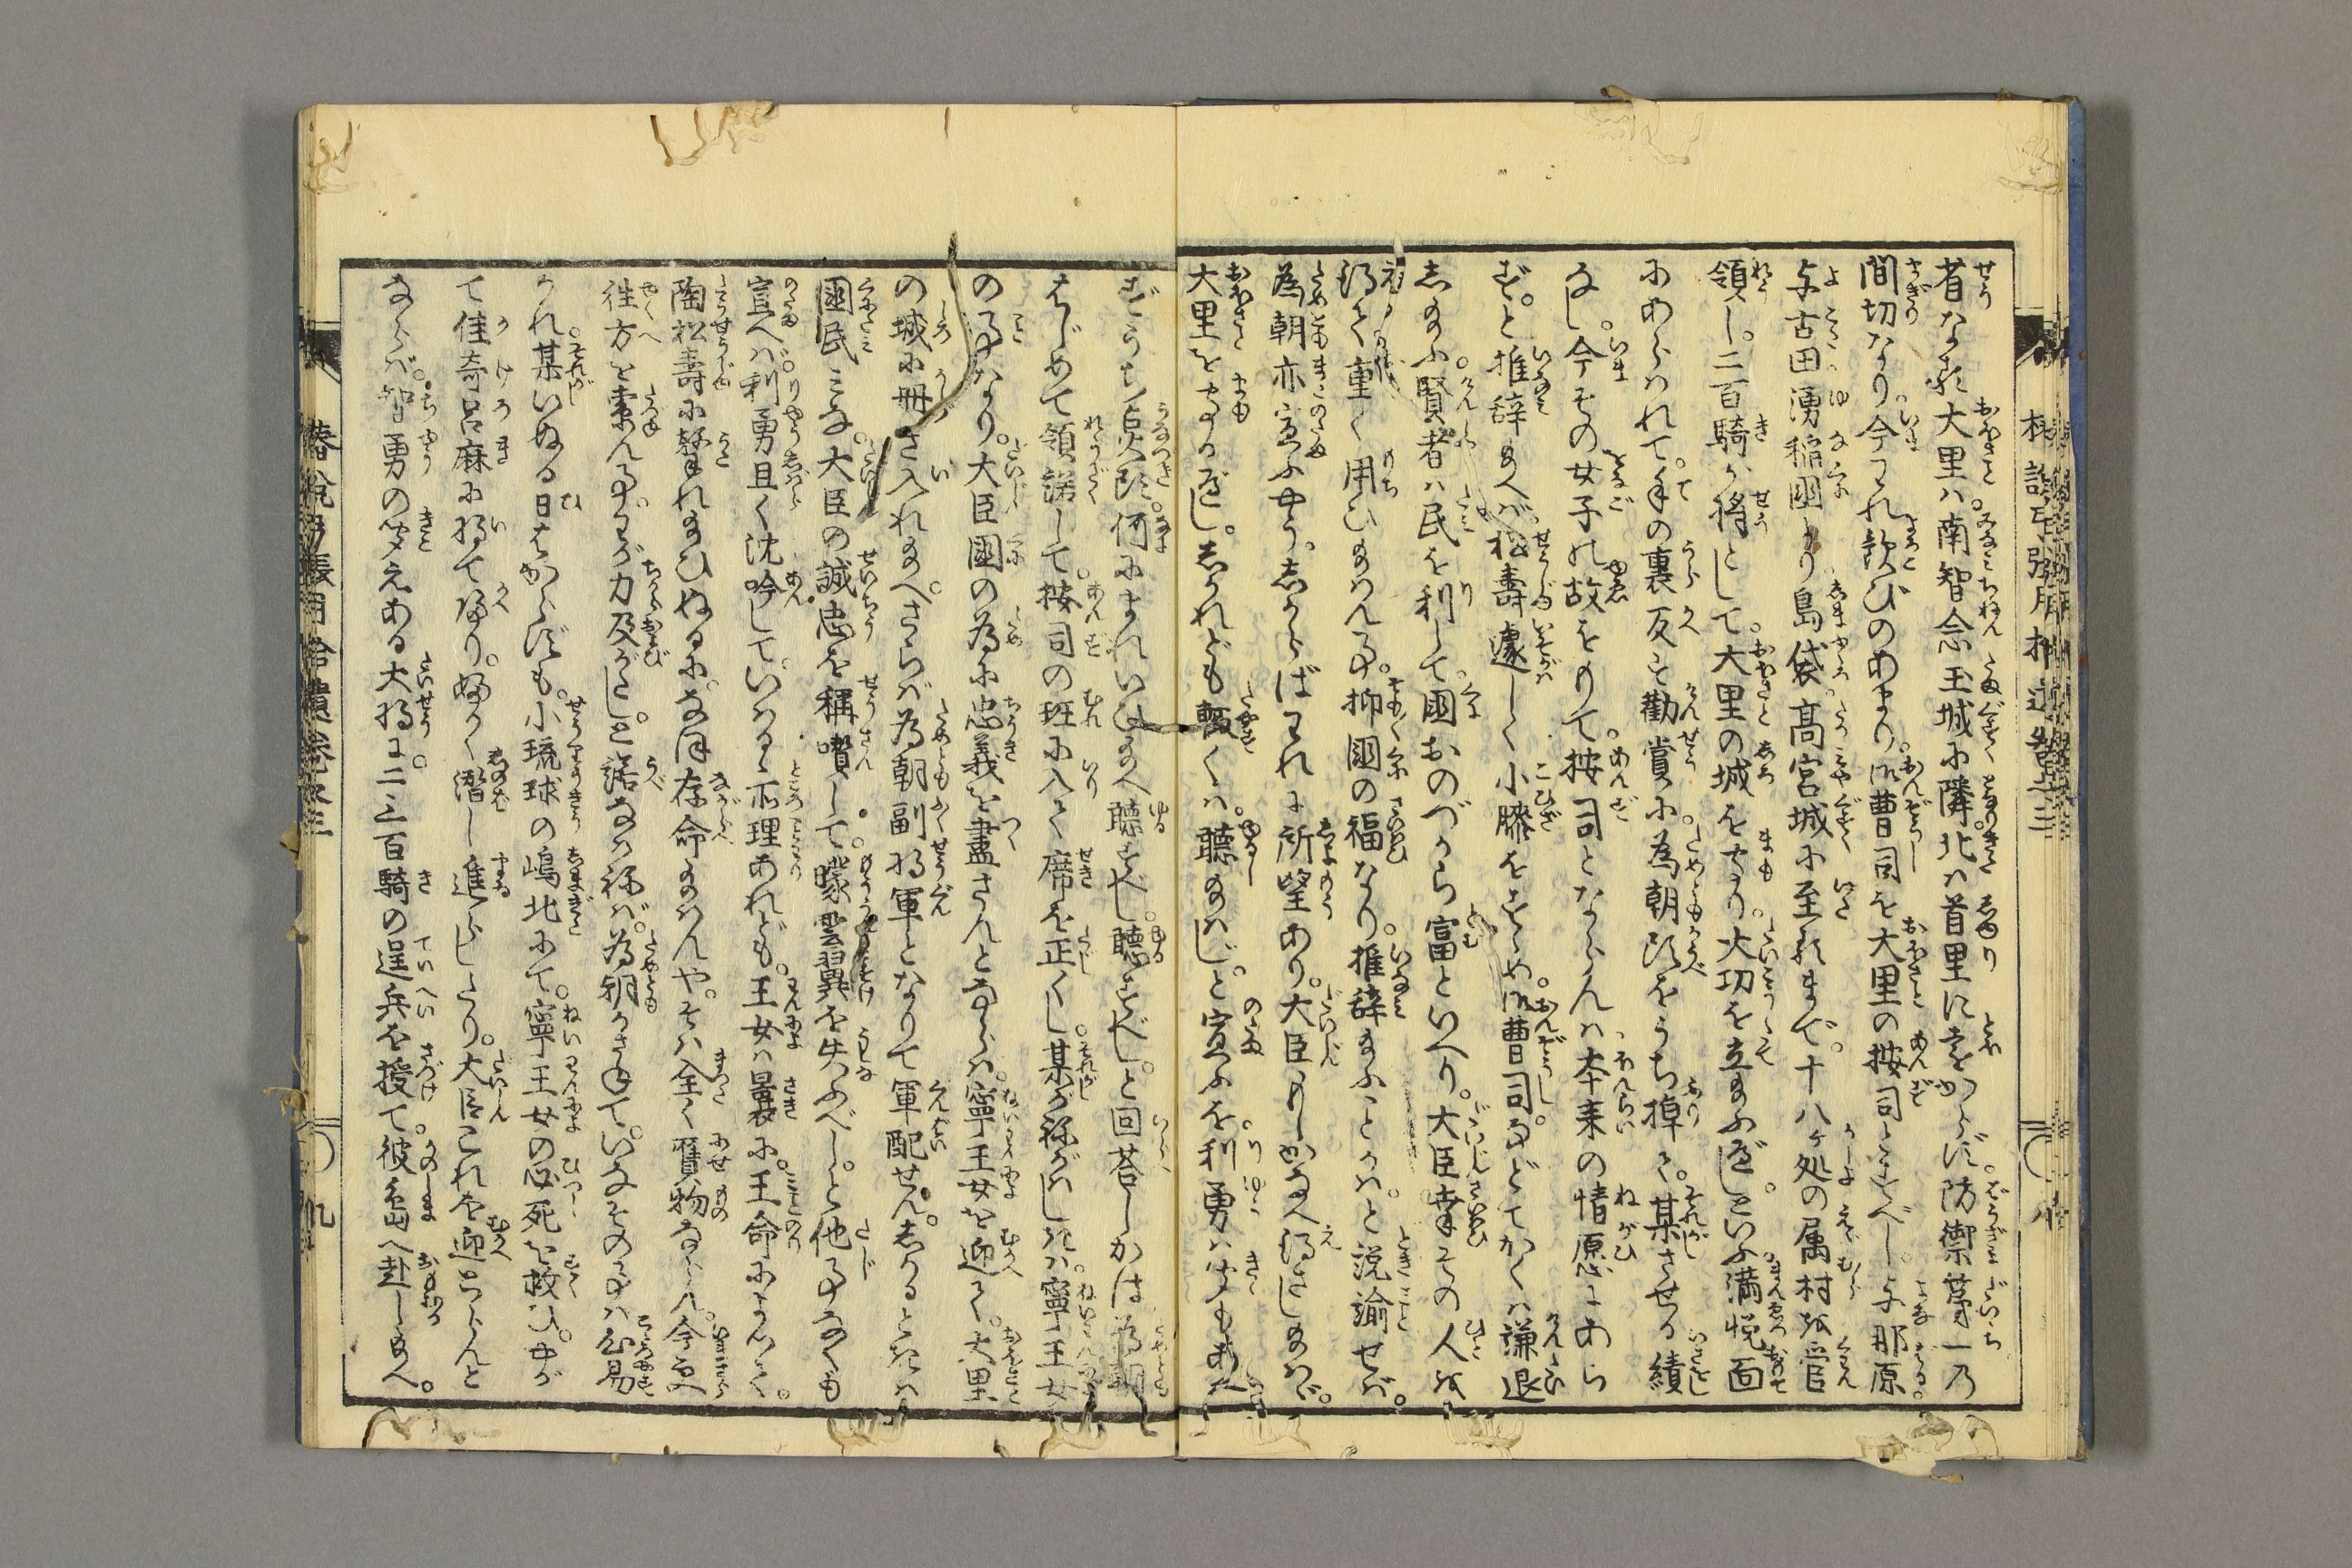 省なる。大里ハ。南智念玉城に隣。北ハ首里に遠からず。防禦第一乃
間切なり。今われ歓びのあまり。御曹司を大里の按司とすべし。与那原。
与古田湧稲國より。島袋。髙宮城に至るまで。十八ヶ処の属村を管
領し。二百騎が将として。大里の城をまもり。大功を立給ふべしといふ。満悦面
にあらはれて。手の裏反す勧賞に。為朝頭をうち掉て。某させる績
なし。今その女子の故をもて。按司とならんハ。本来の情愿にあら
ず。と推辞給へバ。松壽遽しく小膝をすゝめ。御曹司。などてかくハ謙退
し給ふ。賢者ハ民を利して。國おのづから富といへり。大臣幸その人を
得て重く用ひ給はん事。抑國の福なり。推辞給ふことかハ。と説諭せバ。
為朝亦宣ふやう。しからばわれに所望あり。大臣ゆるしかなへ得させ給はゞ。
大里をまもるべし。しかれども輙くハ。聴給はじ。と宣ふを利勇ハ聞もあへ
ずうち点頭。何にまれいひ給へ。聴すべし。聴すべし。と回荅しかは。為朝
はじめて領諾して。按司の班に入て席を正くし。某が称がはしきハ。寧王女
の事なり。大臣國の為に。忠義を盡さんとならハ。寧王女を迎て。大里
の城に冊き入れ給へ。さらバ為朝副将軍となりて軍配せん。しかるときハ
國民みな。大臣の誠忠を稱噆して。曚雲翼を失ふべし。と他事なくも
宣へバ。利勇且く沈吟して。いはるゝ所理あれども。王女ハ曩に。王命によつて。
陶松壽に撃れ給ひぬるに。なほ存命給はんや。そハ全く贋物ならん。今更
徃方を索ん事。わが力及がたし。と諾なはねバ。為朝かさねて。いなその事ハ心易
かれ。某いぬる日はからずも。小琉球の嶋北にて。寧王女の必死を救ひ。やが
て佳奇呂麻に将て帰り。ふかく潜し進らしたり。大臣これを迎とらんと
ならバ。智勇の聞えある大将に。二三百騎の逞兵を授て。彼島へ赴し給へ。